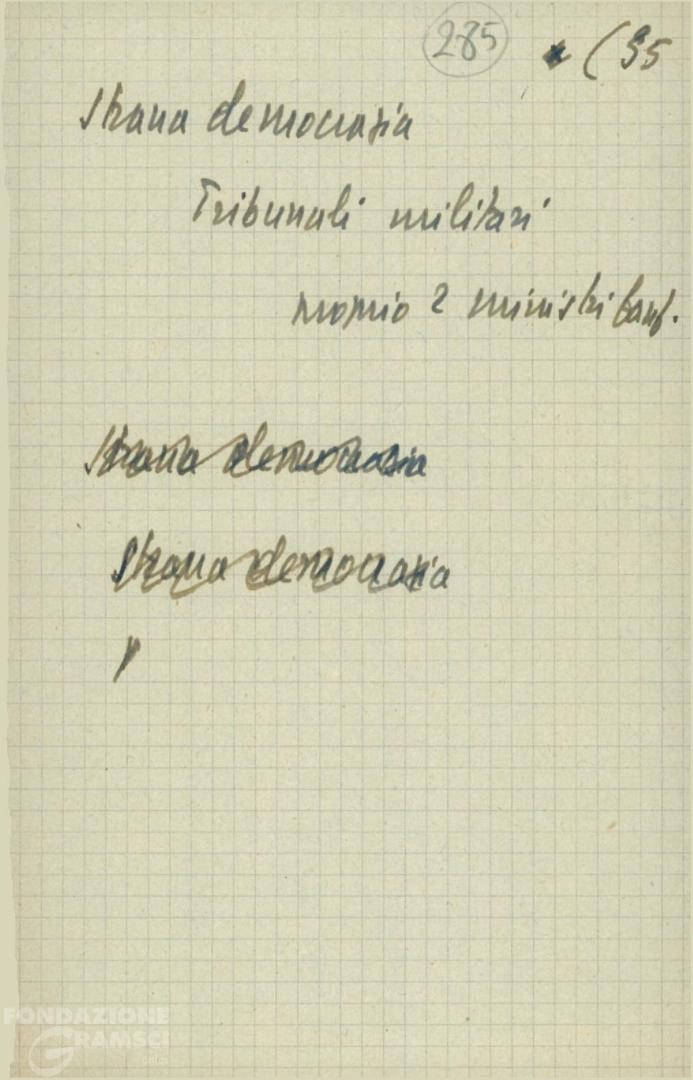 285 (35
Strana democrazia
Tribunali militari
2 ministri
Strana democrazia
Strana democrazia
FONDAZIONE
GRAMSCI